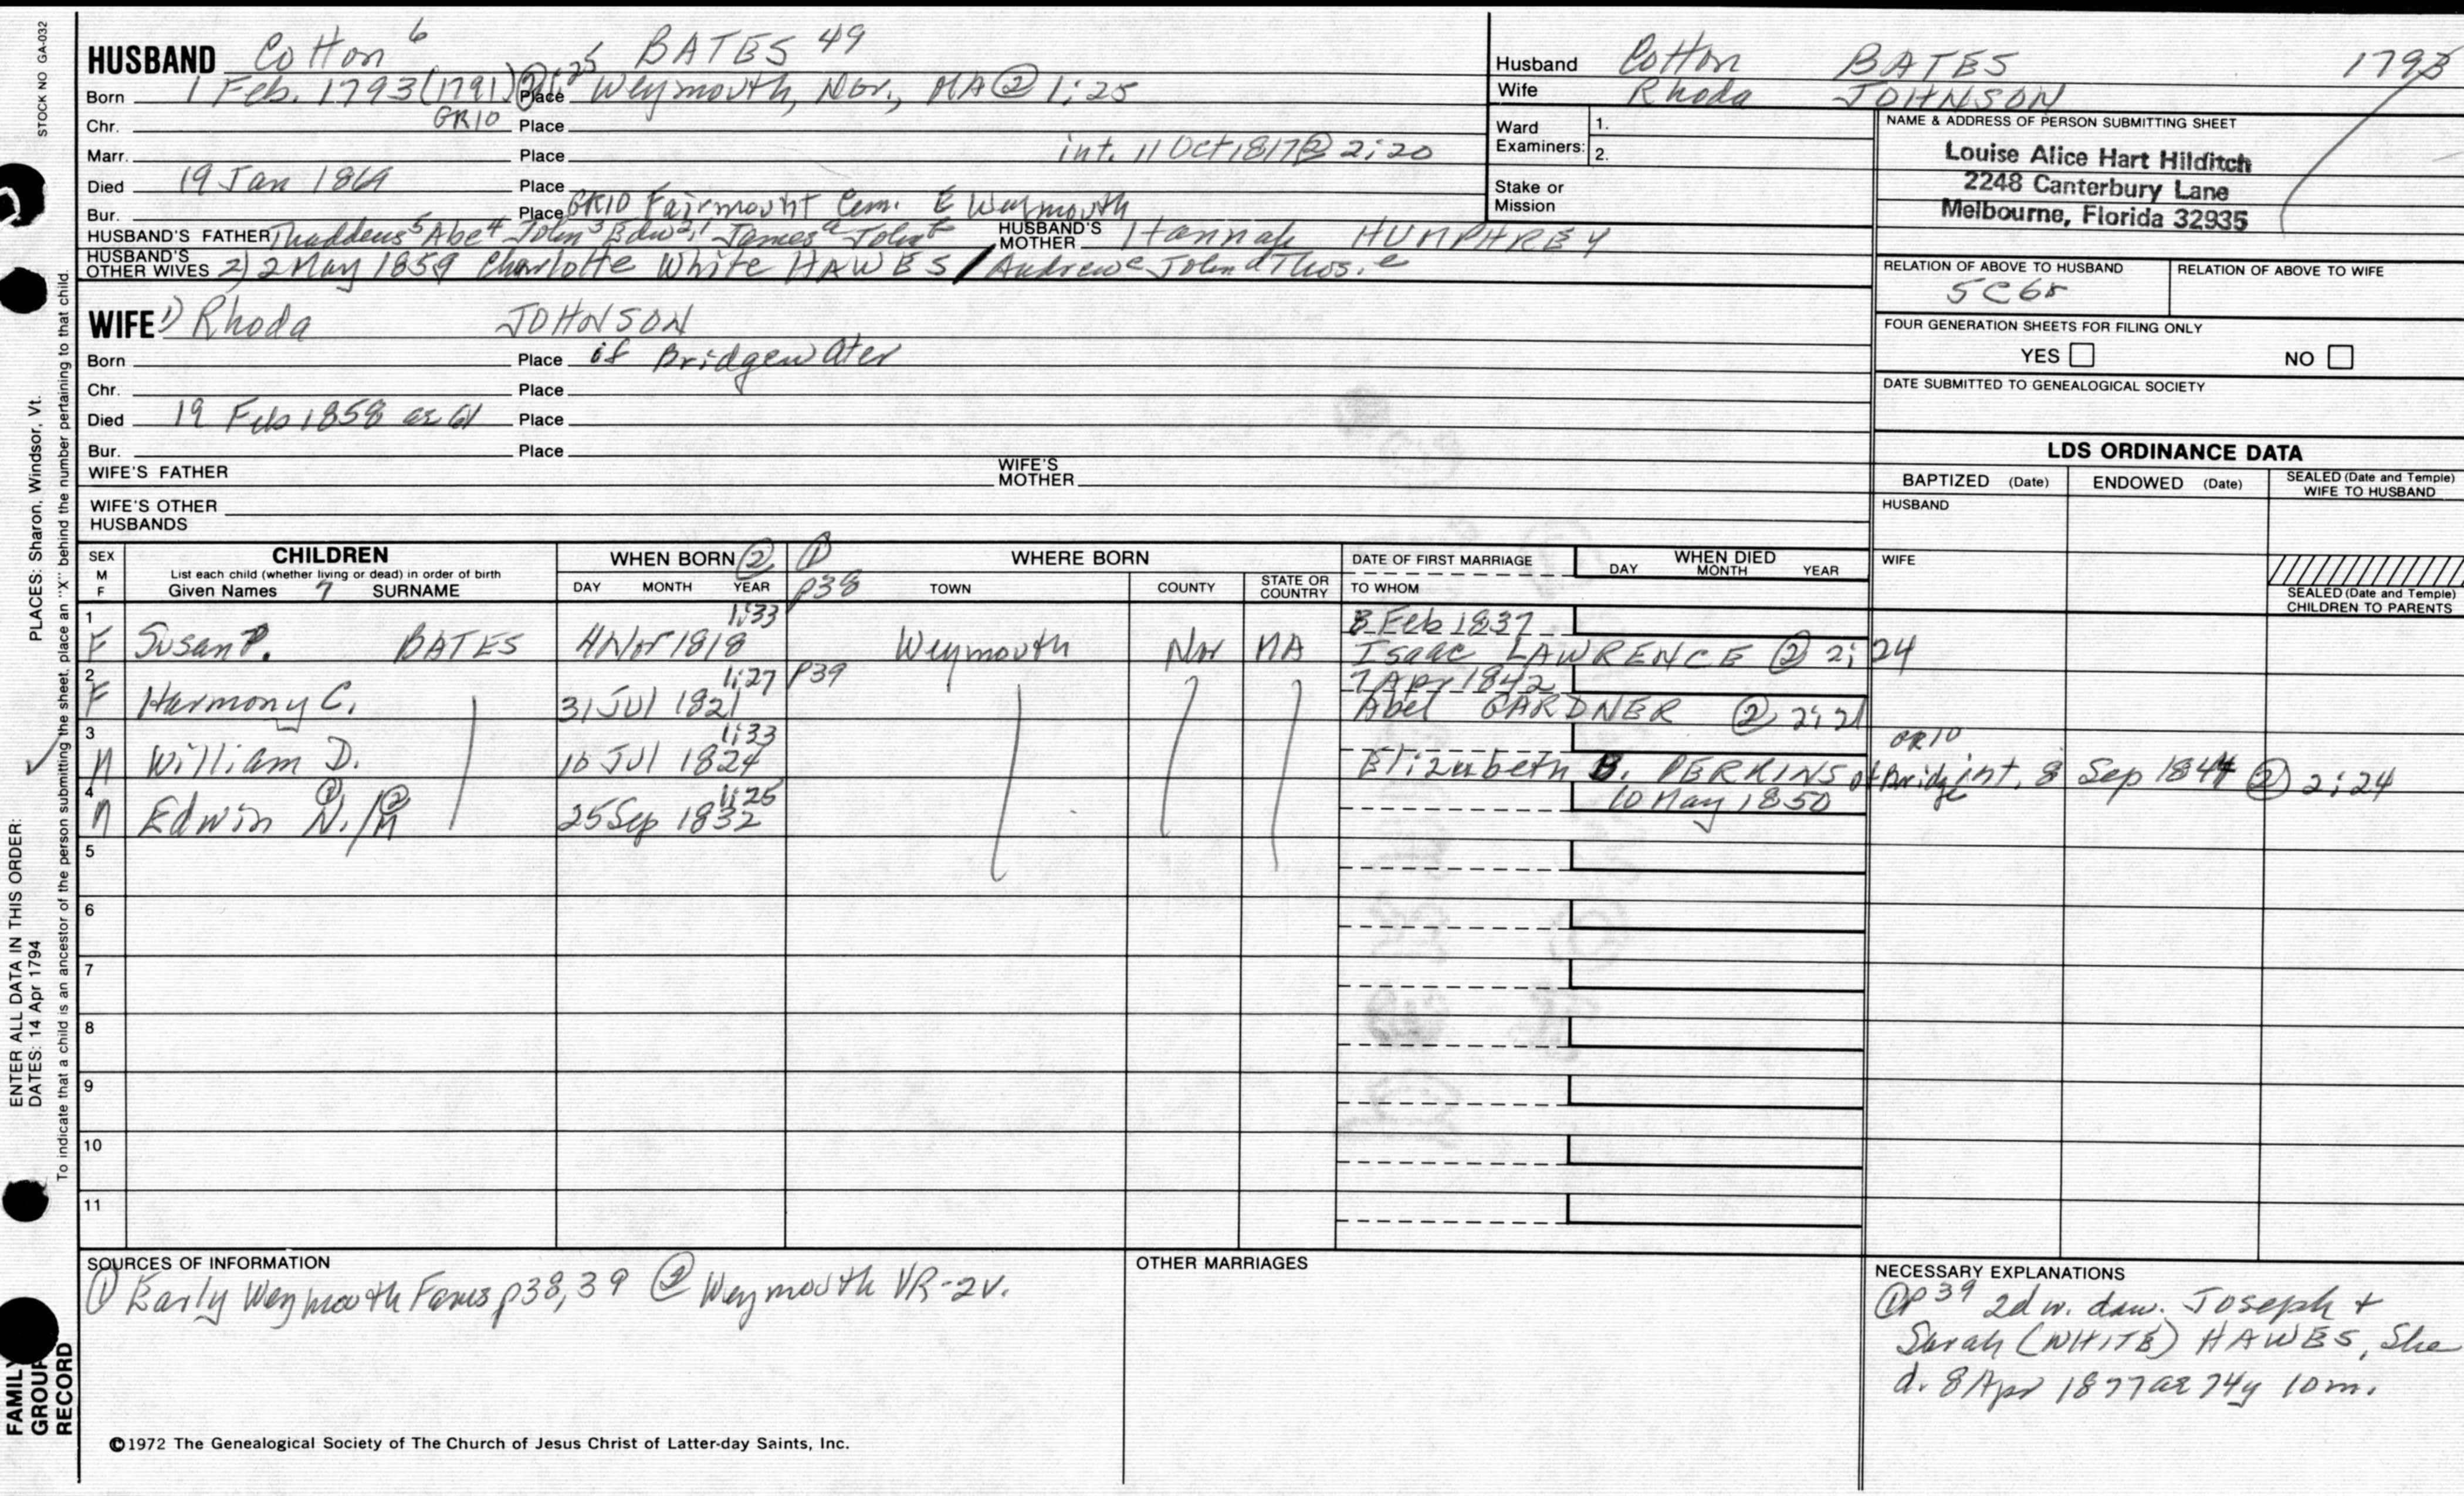 STOCK NO GA-032
HUSBAND Cotton 6 BATES 49
Born 1 Feb. 1793 (1791) ② 1:25 Place Weymouth, Nor., MA ② 1:25
Chr. GR10 Place
Marr. Place int. 11 Oct 1817 ② 2:20
Died 19 Jan 1869 Place
Bur. Place GR10 Fairmount Cem. E Weymouth
HUSBAND'S FATHER Thaddeus5 Abe4 John3 Edw2,1 James a John b HUSBAND'S MOTHER Hannah HUMPHREY
HUSBAND'S OTHER WIVES 2) 2 May 1859 Charlotte White HAWES / Andrew c John d Thos. e
WIFE 1) Rhoda JOHNSON
Born Place of Bridgewater
Chr. Place
Died 19 Feb 1858 ae 61 Place
Bur. Place
WIFE'S FATHER WIFE'S MOTHER
WIFE'S OTHER HUSBANDS
Husband Cotton BATES 1793
Wife Rhoda JOHNSON
Ward Examiners: 1.
2.
Stake or Mission
NAME & ADDRESS OF PERSON SUBMITTING SHEET
Louise Alice Hart Hilditch
2248 Canterbury Lane
Melbourne, Florida 32935
RELATION OF ABOVE TO HUSBAND RELATION OF ABOVE TO WIFE
5C6r
FOUR GENERATION SHEETS FOR FILING ONLY
YES NO
DATE SUBMITTED TO GENEALOGICAL SOCIETY
LDS ORDINANCE DATA
BAPTIZED (Date) ENDOWED (Date) SEALED (Date and Temple) WIFE TO HUSBAND
HUSBAND
WIFE
SEALED (Date and Temple) CHILDREN TO PARENTS
SEX M F CHILDREN WHEN BORN ② ① WHERE BORN DATE OF FIRST MARRIAGE WHEN DIED
List each child (whether living or dead) in order of birth
Given Names 7 SURNAME DAY MONTH YEAR p38 TOWN COUNTY STATE OR COUNTRY TO WHOM DAY MONTH YEAR
1 1:33 3 Feb 1837
F Susan P. BATES 4 Nov 1818 Weymouth Nor MA Isaac LAWRENCE ② 2:24
2 1:27 p39 7 Apr 1842
F Harmony C. 31 Jul 1821 Abel GARDNER ② 2:21
3 1:33 GR10
M William D. 10 Jul 1824 Elizabeth B. PERKINS of Bridge int. 8 Sep 1844 ② 2:24
4 ① ② 1:25 10 May 1850
M Edwin N./M 25 Sep 1832
5
6
7
8
9
10
11
SOURCES OF INFORMATION
① Early Weymouth Fams p38, 39 ② Weymouth VR-2v.
OTHER MARRIAGES
NECESSARY EXPLANATIONS
① p39 2d w. dau. Joseph +
Sarah (WHITE) HAWES, She
d. 8 Apr 1877 ae 74y 10m.
©1972 The Genealogical Society of The Church of Jesus Christ of Latter-day Saints, Inc.
ENTER ALL DATA IN THIS ORDER: PLACES: Sharon, Windsor, Vt.
DATES: 14 Apr 1794
To indicate that a child is an ancestor of the person submitting the sheet, place an "X" behind the number pertaining to that child.
FAMILY GROUP RECORD